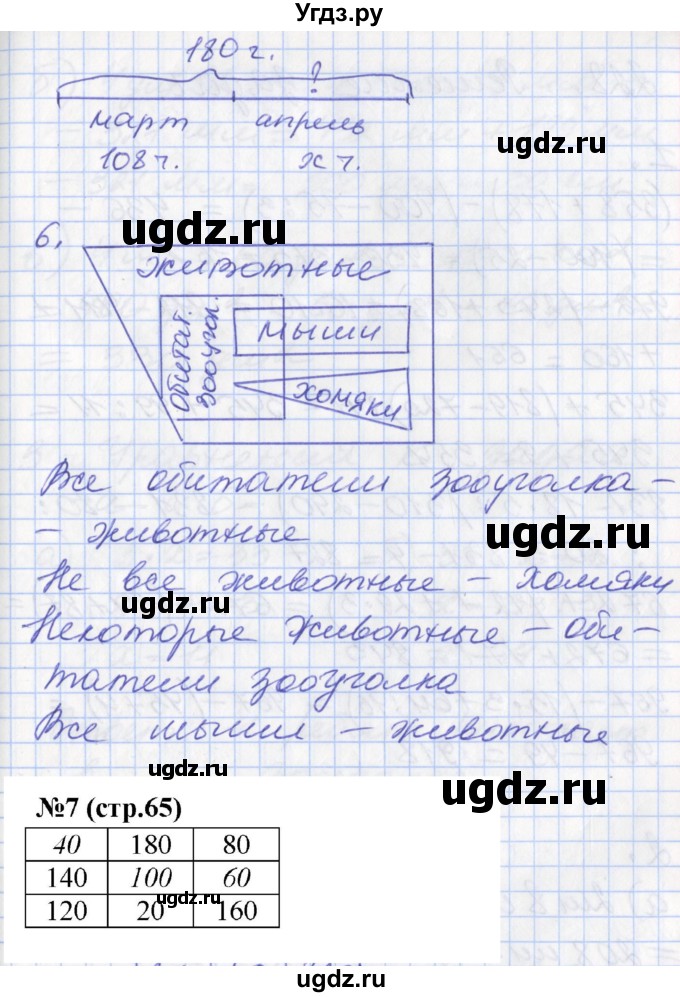 Угдз.ру
180 г.
?
март апрель
108 г. х г.
ugdz.ru
6.
животные
обитат.
зооугол.
мыши
хомяки
ugdz.ru
Все обитатели зооуголка-
- животные
ugdz.ru
Не все животные - хомяки
ugdz.ru
Некоторые животные - оби-
татели зооуголка
ugdz.ru
Все мыши - животные
ugdz.ru
ugdz.ru
№7 (стр.65)
40 180 80
140 100 60
120 20 160
ugdz.ru
ugdz.ru